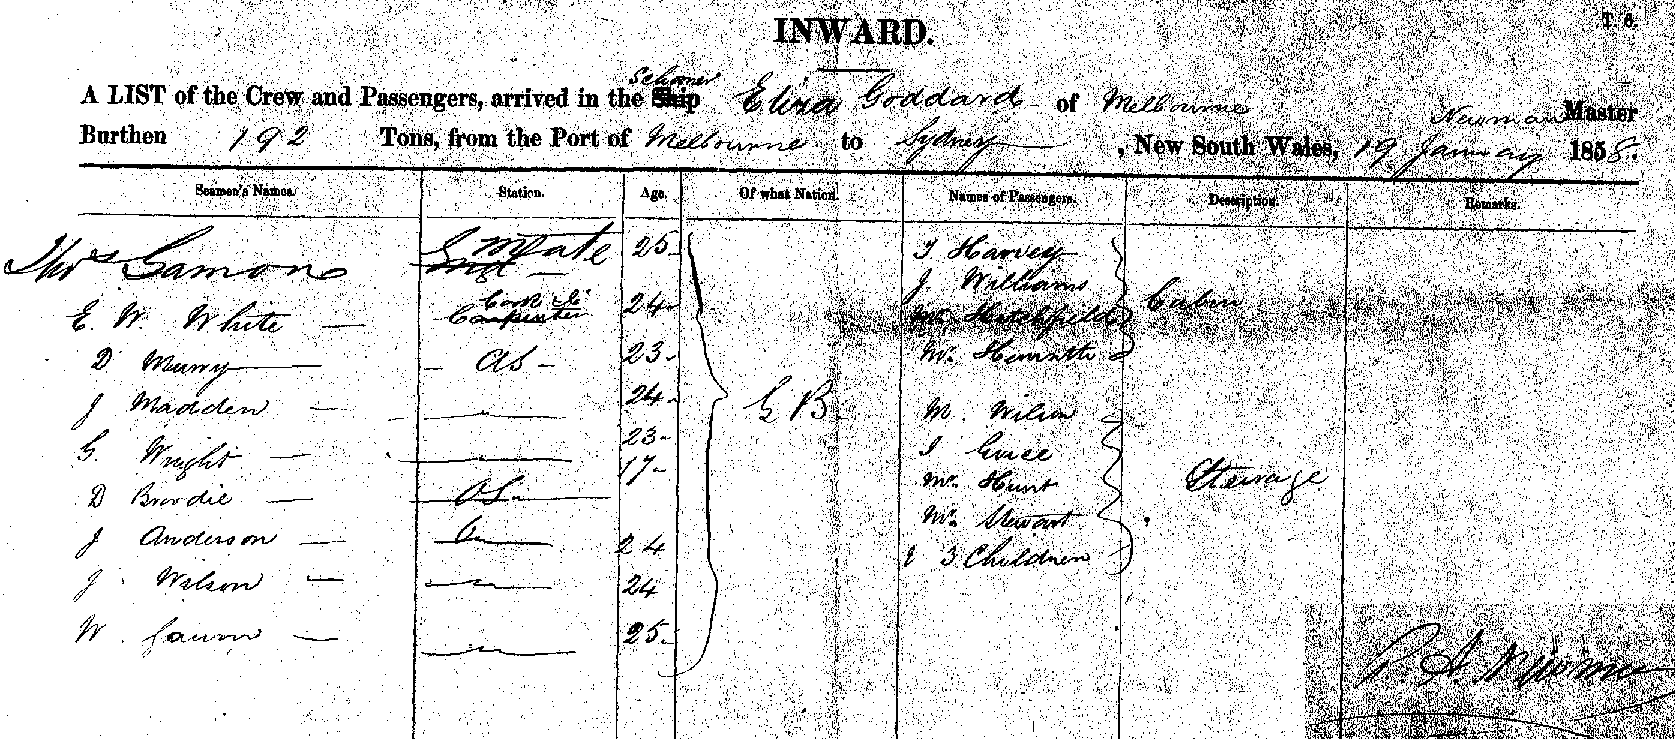 T 6.
INWARD.
A LIST of the Crew and Passengers, arrived in the Ship Schooner Eliza Goddard of Melbourne
Newman Master
Burthen 192 Tons, from the Port of Melbourne to Sydney, New South Wales, 19 January 1858.
Seamen's Names. Station. Age. Of what Nation. Names of Passengers. Description. Remarks.
Thos Mate 25 J Harvey
J. Williams
E. W. White Cook 24 Cabin
D Murry AS 23 Mr.
J Madden 24 G B M. Wilson
G. Wright 23 J Grice
17 Mr. Hunt Steerage
D Brodie OS
Mr. Stewart
J Anderson 24 & 3 Children
J. Wilson 24
W. 25